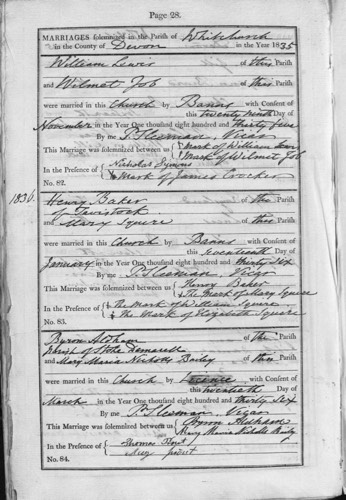 Page 28.
MARRIAGES solemnized in the Parish of Whitchurch
in the County of Devon in the Year 1835
William Lewis of this Parish
and Wilmot Job of this Parish
were married in this Church by Banns with Consent of
this twenty ninth Day of
November in the Year One thousand eight hundred and thirty five
By me P. Sleeman, Vicar
This Marriage was solemnized between us { Mark of William Lewis
Mark of Wilmot Job
In the Presence of { Nicholas Symons
Mark of James
No. 82.
1836.
Henry Baker of the Parish
of Tavistock
and Mary Squire of this Parish
were married in this Church by Banns with Consent of
this seventeenth Day of
January in the Year One thousand eight hundred and thirty Six
By me P. Sleeman, Vicar
This Marriage was solemnized between us { Henry Baker
The Mark of Mary Squire
In the Presence of { The Mark of Squire
The Mark of Elizabeth Squire
No. 83.
Byron Aldham of the Parish
parish of Stoke Damarell
and Mary Maria Nicholls Bailey of this Parish
were married in this Church by Licence with Consent of
this twentieth Day of
March in the Year One thousand eight hundred and thirty Six
By me P. Sleeman, Vicar
This Marriage was solemnized between us { Byron Aldham
Mary Maria Nicholls Bailey
In the Presence of { Thomas
No. 84.